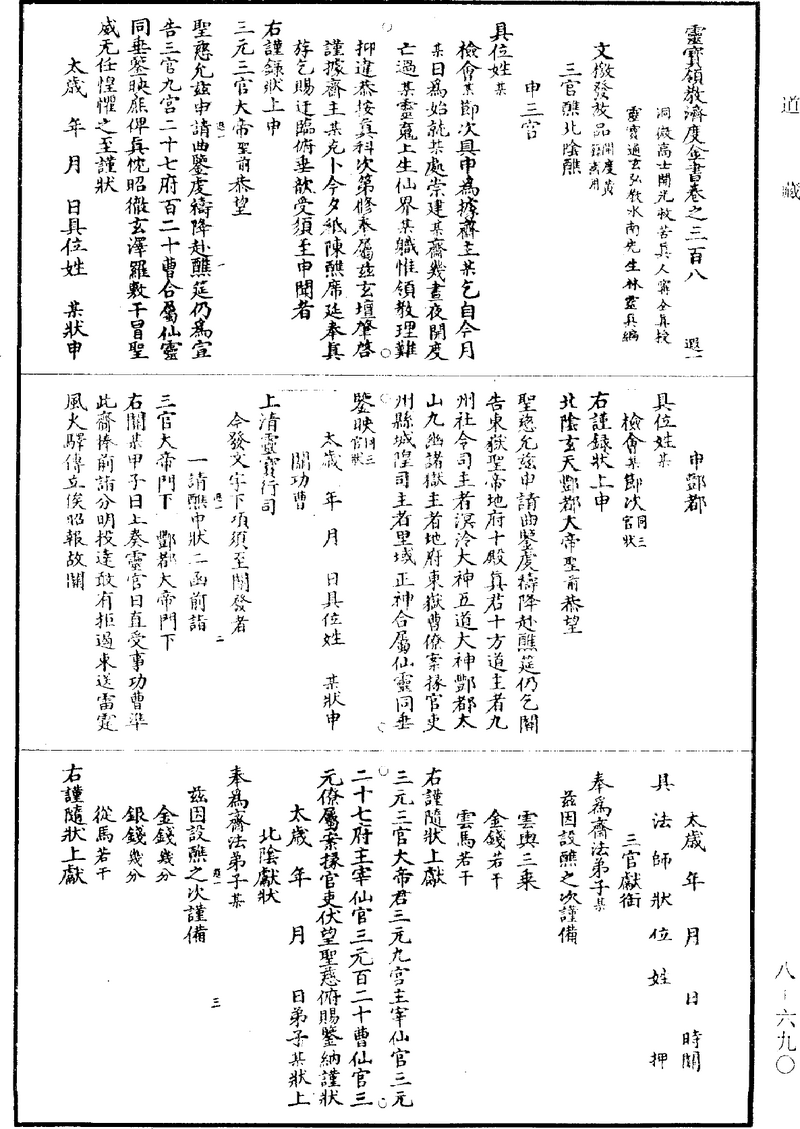 道藏
靈寶領教濟度金書卷之三百八 遐一
洞微高士開光救苦真人甯全真授
靈寶通玄弘教水南先生林靈真編
文檄發放品開度黃籙齋用
三官醮北陰醮
申三官
具位姓某
檢會某節次具申為據齋主某乞自今月
某日為始就某處崇建某齋幾晝夜開度
亡過某靈魂上生仙界某職惟領教理難
抑違恭按真科次第修奉屬茲玄壇肇啓
謹據齋主某充卜今夕祗陳醮席延奉真
斿乞賜迂臨俯垂歆受須至申聞者
右謹錄狀上申
三元三官大帝聖前恭望
聖慈允茲申請曲鑒虔禱降赴醮筵仍為宣
告三官九宮二十七府百二十曹合屬仙靈
同垂鑒映庶俾真忱昭徹玄澤羅敷干冒聖
威无任惶懼之至謹狀
太歲 年 月 日具位姓 某狀申
申酆都
具位姓某
檢會某節次同三官狀
右謹錄狀上申
北陰玄天酆都大帝聖前恭望
聖慈允茲申請曲鑒虔禱降赴醮筵仍乞關
告東嶽聖帝地府十殿真君十方道主者九
州社令司主者溟泠大神五道大神酆都太
山九幽諸獄主者地府東嶽曹僚案掾官吏
州縣城隍司主者里域正神合屬仙靈同垂
鑒映同三官狀
太歲 年 月 日具位姓 某狀申
關功曹
上清靈寶行司
今發文字下項須至關發者
一請醮申狀二函前詣
三官大帝門下 酆都大帝門下
右關某甲子日上奏靈官日直受事功曹準
此齋捧前詣分明投達敢有拒遏束送雷霆
風火驛傳立俟昭報故關
太歲 年 月 日 時關
具法師狀位姓 押
三官獻銜
奉為齋法弟子某
茲因設醮之次謹備
雲輿三乘
金錢若干
雲馬若干
右謹隨狀上獻
三元三官大帝君三元九宮主宰仙官三元
二十七府主宰仙官三元百二十曹仙官三
元僚屬案掾官吏伏望聖慈俯賜鑒納謹狀
太歲 年 月 日弟子某狀上
北陰獻狀
奉為齋法弟子某
茲因設醮之次謹備
金錢幾分
銀錢幾分
從馬若干
右謹隨狀上獻
八-六九〇